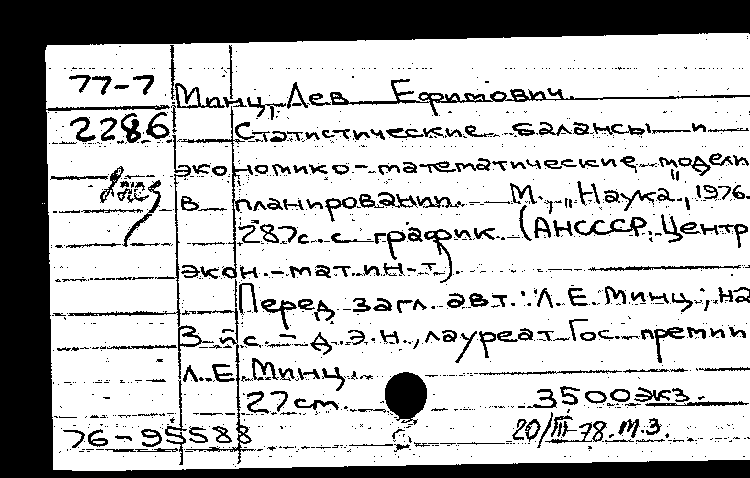 77-7
Минц, Лев Ефимович.
2286 Статистические балансы и
экономико-математические модели
в планировании. М., „Наука", 1976.
287с. с график. (АНСССР. Центр.
экон.-мат. ин-т).
Перед загл. авт.: Л.Е. Минц; на
3-й с - д.э.н., лауреат Гос. премии
Л.Е. Минц.
27 см. 3500 экз.
76-95588 20/III 78. М.З.